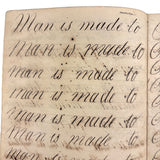 Man is made to
Man is made to
man is made to
man is made to
Man is made to
Man is made to
Man is made to